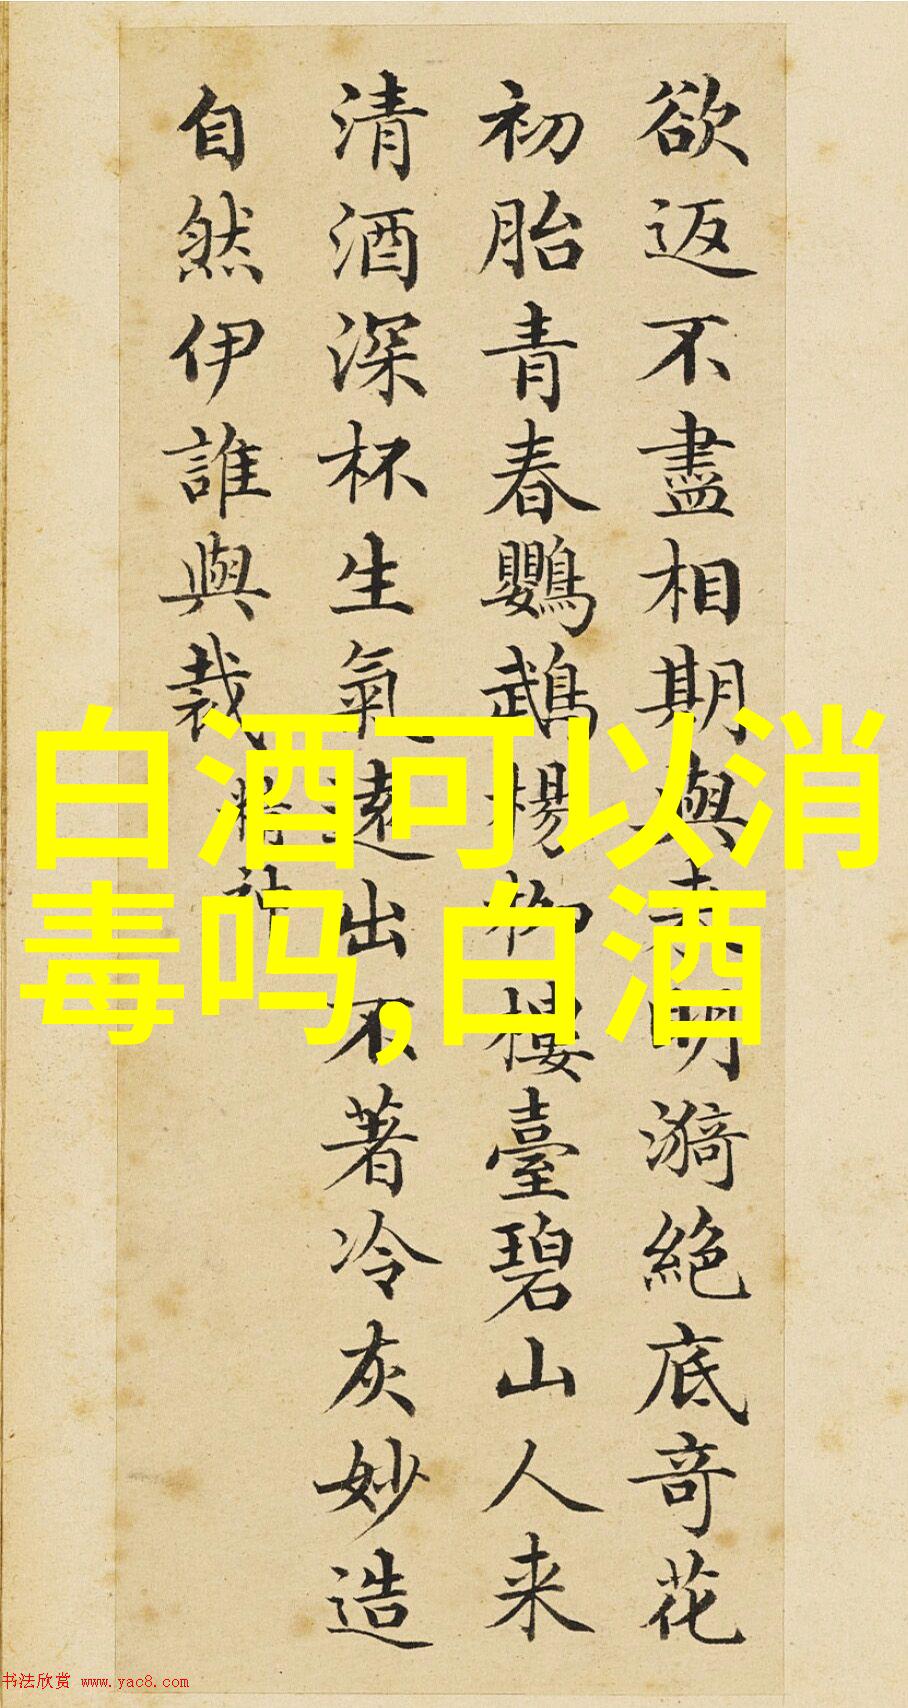 欲返不盡相期與来明漪絕底奇花
初胎青春鸚鵡楊柳樓臺碧山人来
清酒深杯生氣遠出不著冷灰妙造
自然伊誰與裁
白酒可以消
毒吗,白酒
书法欣赏 www.yac8.com